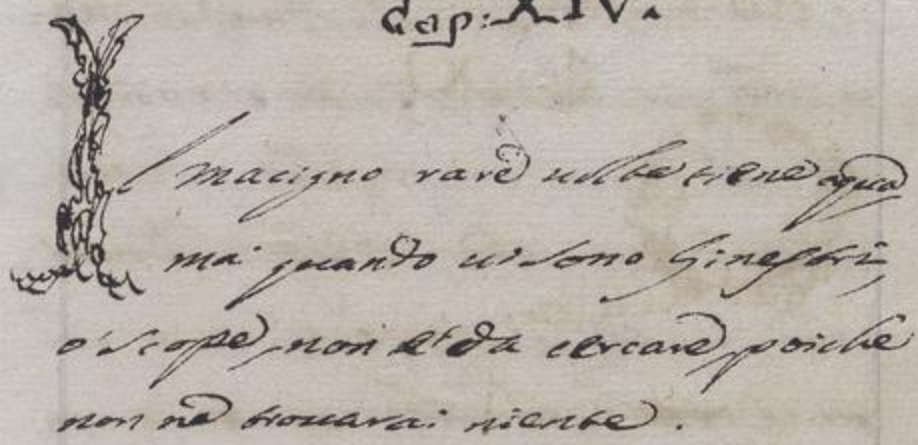 Cap: XIV.
Il macigno rare uolte tiene aqua
ma quando ui sono Ginepri,
o' scope, non e' da cercare, poiche
non ne trouarai niente.